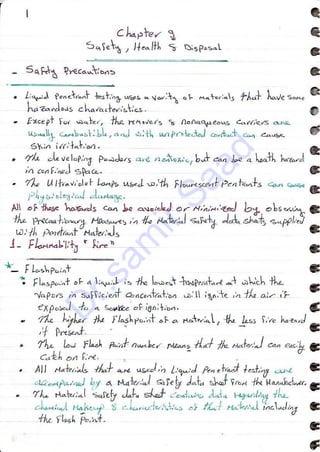 1
Chapter 9
Safety, Health & Disposal
- Safety Precautions
• Liquid Penetrant testing uses a varity of materials that have some
hazardous characteristics.
• Except for water, the remover's & nonaqueous carriers are
usually combustible, and with unprotected contact can cause
skin irritation.
• The developing powders are nontoxic, but can be a heath hazard
in confined space.
• The Ultraviolet lamps used with Flourescent Pentrants can cause
Physiological damage.
All of these hazards can be avoided or Minimized by observing
the precautionary Measures in the Material Safety data sheets supplied
with penetrant Materials
1- Flammability "Fire"
* Flashpoint
• Flaspoint of a liquid is the lowest temperature at which the
vapors in sufficient concentration will ignite in the air if
exposed to a source of ignition.
• The higher the Flashpoint of a Material, the less fire hazard
if Present.
• The low Flash Point number Means that the Material can easily
catch on fire.
• All Materials that are used in Liquid Penetrant testing are
accompanied by a Material Safety data sheet from the Manufacturer.
• The Material Safety data sheet contains data regarding the
chemical Makeup & characteristics of that Material including
the Flash Point.